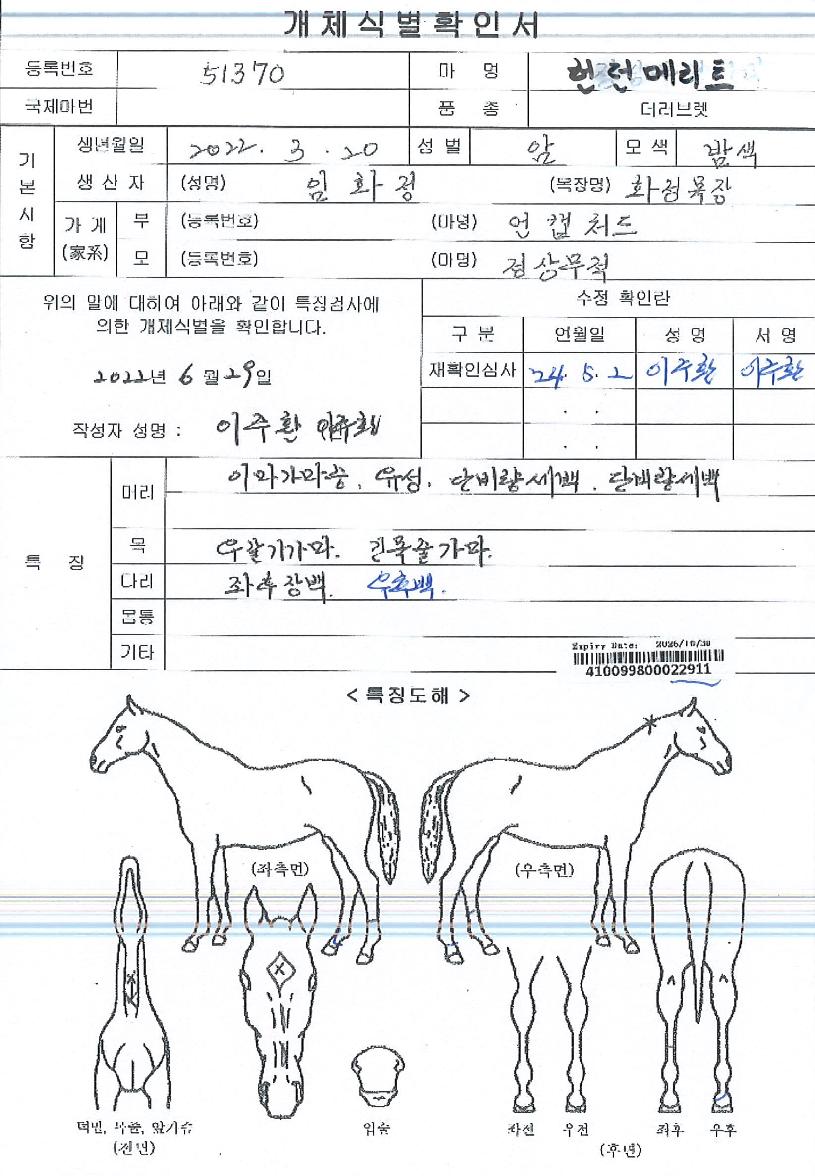 개체식별확인서
등록번호 51370 마 명 헌턴메리트
국제마번 품 종 더러브렛
기본사항
생년월일 2022. 3. 20 성별 암 모색 밤색
생산자 (성명) 임화정 (목장명) 화정목장
가계 (家系) 부 (등록번호) (마명) 언캡처드
모 (등록번호) (마명) 점상무적
위의 말에 대하여 아래와 같이 특징검사에
의한 개체식별을 확인합니다.
2022년 6월 29일
작성자 성명 : 이주환 이주환
수정 확인란
구분 연월일 성명 서명
재확인심사 24. 5. 2 이주환 이주환
. .
. .
특 징
머리 이마가마중, 유성, 단비량세백, 단비량세백
목 우찰기가마. 긴목줄가마.
다리 좌후장백. 우후백.
몸통
기타
Expiry Date: 2026/10/30
410099800022911
<특징도해>
(좌측면) (우측면)
턱밑, 목줄, 앞가슴
(전면)
입술
좌전 우전 좌후 우후
(후면)